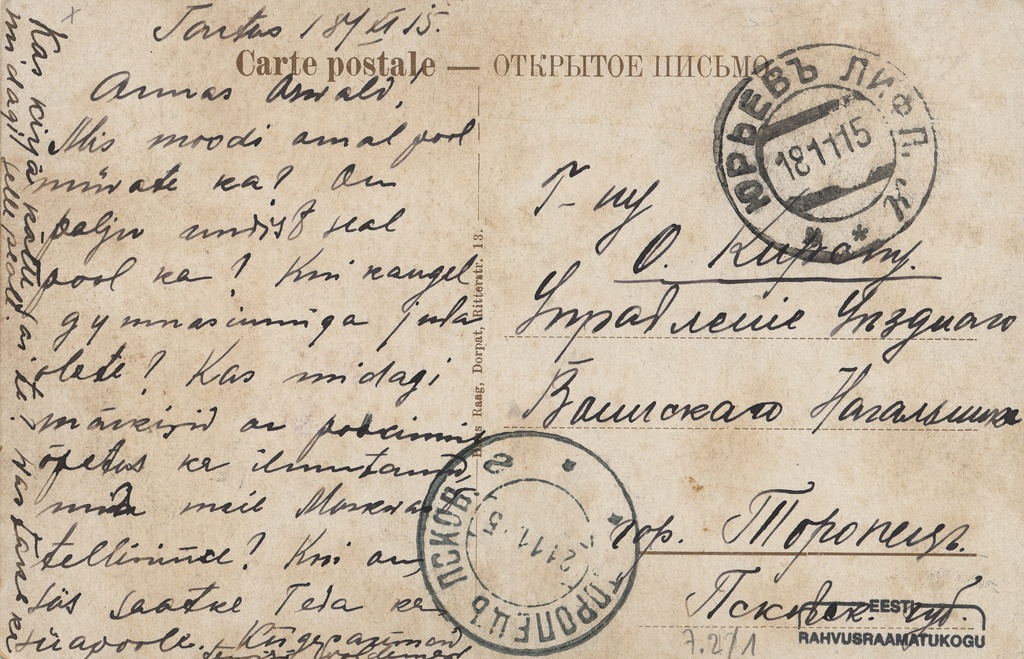 Tartus 18/XI 15.
Carte postale — ОТКРЫТОЕ ПИСЬМО
Armas Oswald!
Mis moodi amal pool
müwate ka? On
palju undist seal
pool ka? Kui kaugel
gymnasiumiga juba
olete? Kas midagi
märkisid on
õpetus ka ilmutanud,
mida meil Moskwas
tellisime? Kui on,
siis saatke Teda ka
siiapoole.
Kas kirja kätte saite? Wastake ka
midagi selle peale!
Hans Raag, Dorpat, Ritterstr. 13.
ЮРЬЕВЪ ЛИФЛ.
18 11 15
Г-ну
О. Кирсту.
Управленіе Уѣзднаго
Воинскаго Начальника
гор. Торопецъ.
Псковск. губ.
ТОРОПЕЦЪ ПСКОВ. 2
21 11 15
EESTI
RAHVUSRAAMATUKOGU
7.2/1